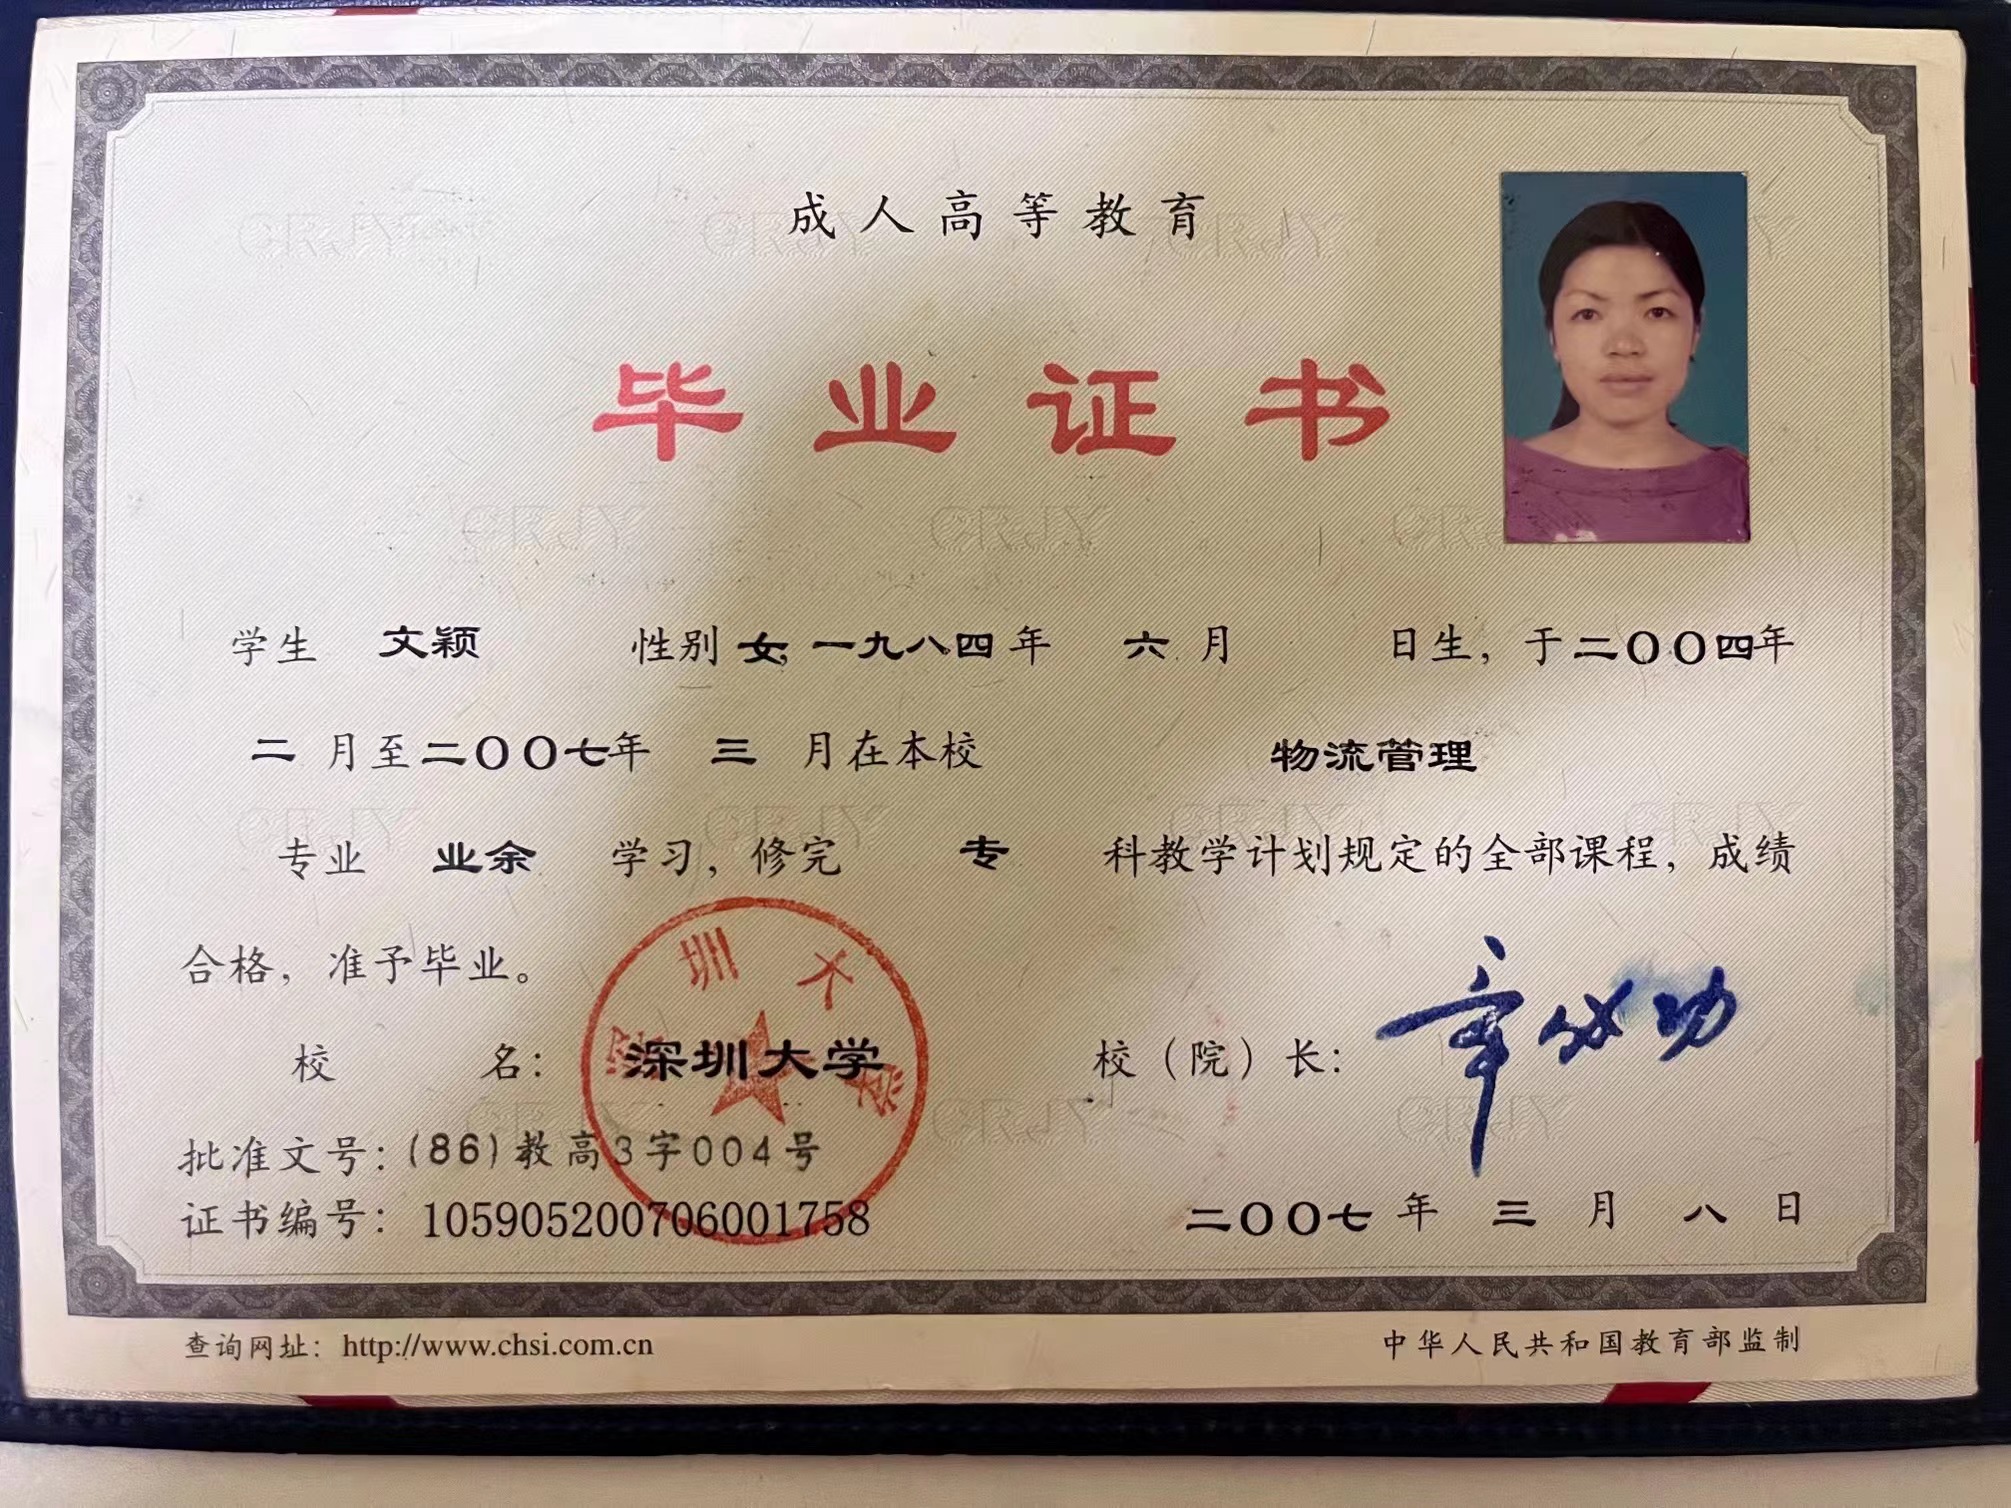 成人高等教育
毕业证书
学生 文颖 性别 女, 一九八四 年 六 月 日生，于二〇〇四年
二 月至二〇〇七年 三 月在本校 物流管理
专业 业余 学习，修完 专 科教学计划规定的全部课程，成绩
合格，准予毕业。
校 名：深圳大学 校（院）长：章必功
深圳大学
批准文号：(86)教高3字004号
证书编号：105905200706001758 二〇〇七 年 三 月 八 日
查询网址：http://www.chsi.com.cn 中华人民共和国教育部监制
CRJY CRJY CRJY
CRJY CRJY CRJY
CRJY CRJY CRJY CRJY
CRJY CRJY CRJY